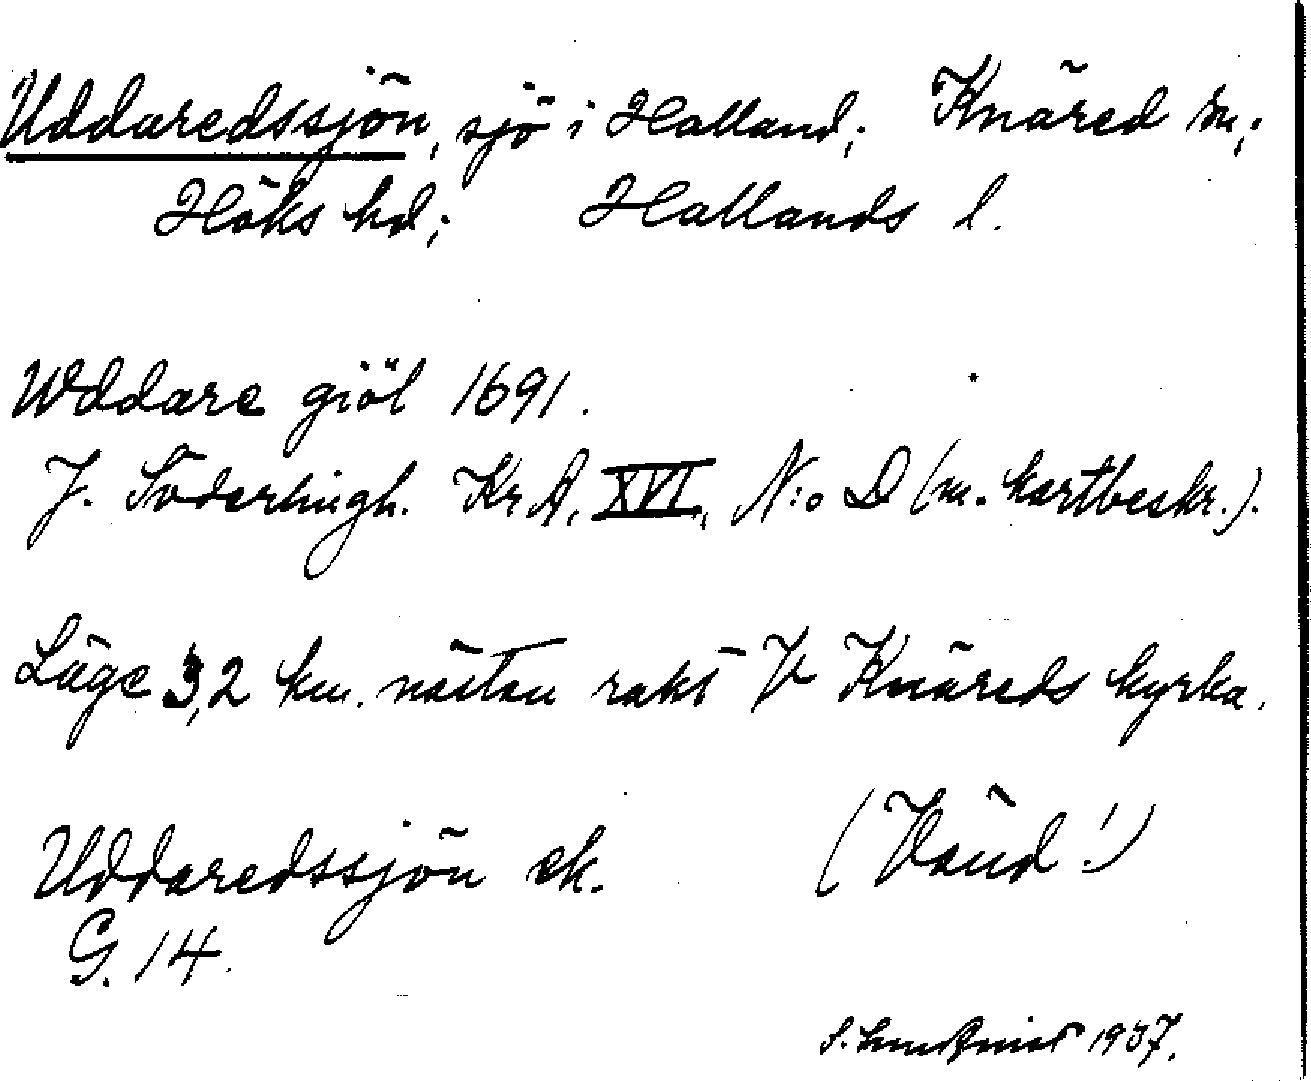 Uddaredssjön, sjö i Halland; Knäred sn;
Höks hd; Hallands l.
Wddare giöl 1691.
J. Söderlingh. Kr A. XVI, N:o D (m. kartbeskr.).
Läge 3,2 km. nästan rakt V Knäreds kyrka.
Uddaredssjön ek. (Vänd!)
G. 14.
1937.